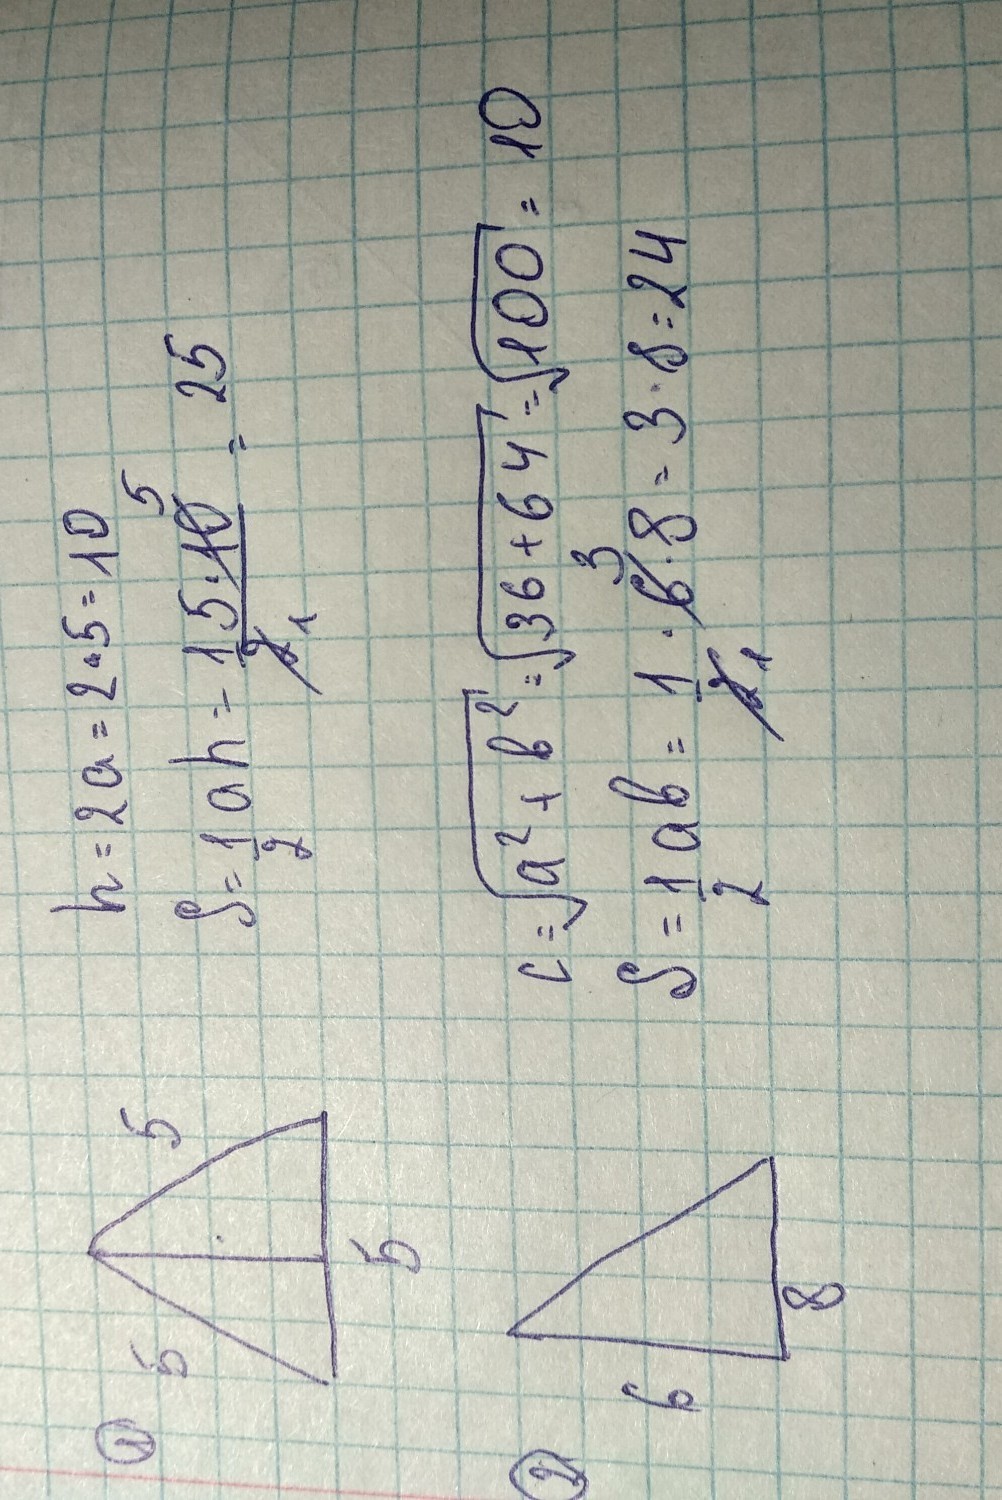 ① 5 5 5
h = 2a = 2·5 = 10
S = 1/2 ah = 1/2 5·10 5 1 = 25
② 6 8
c = √a² + b² = √36 + 64 = √100 = 10
S = 1/2 ab = 1/2 · 6 · 8 3 1 = 3 · 8 = 24